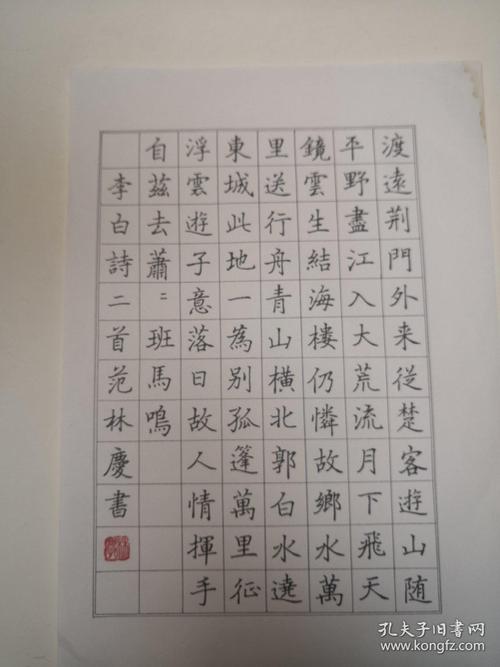 渡遠荆門外来從楚客遊山随
平野盡江入大荒流月下飛天
鏡雲生結海樓仍憐故鄉水萬
里送行舟青山橫北郭白水遶
東城此地一為別孤篷萬里征
浮雲遊子意落日故人情揮手
自茲去蕭〻班馬鳴
李白詩二首范林慶書
孔夫子旧书网
www.kongfz.com